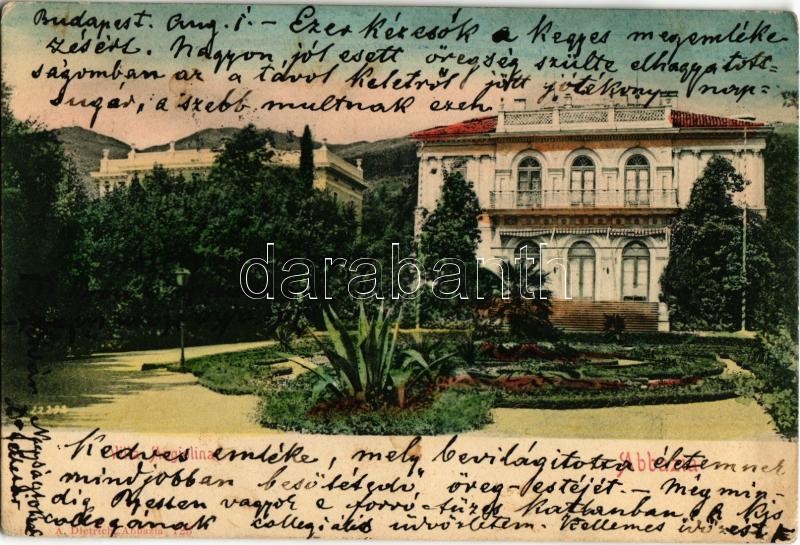 Budapest. Aug. 1. - Ezer kézcsók a kegyes megemléke
zésért. Nagyon jól esett öregség szülte elhagyatott-
ságomban az a távol keletről jött jótékony nap-
sugár, a szebb multnak ezen
darabanth
Villa Angiolina
Abbazia
Kedves emléke, mely bevilágította életemnek
mindjobban besötétedő, öreg-estéjét. - Még min-
dig Pesten vagyok e forró tüzes katlanban. A kis
collegának collegiális üdvözletem. Kellemes
Nagyságtokat
A. Dietrich, Abbazia 125